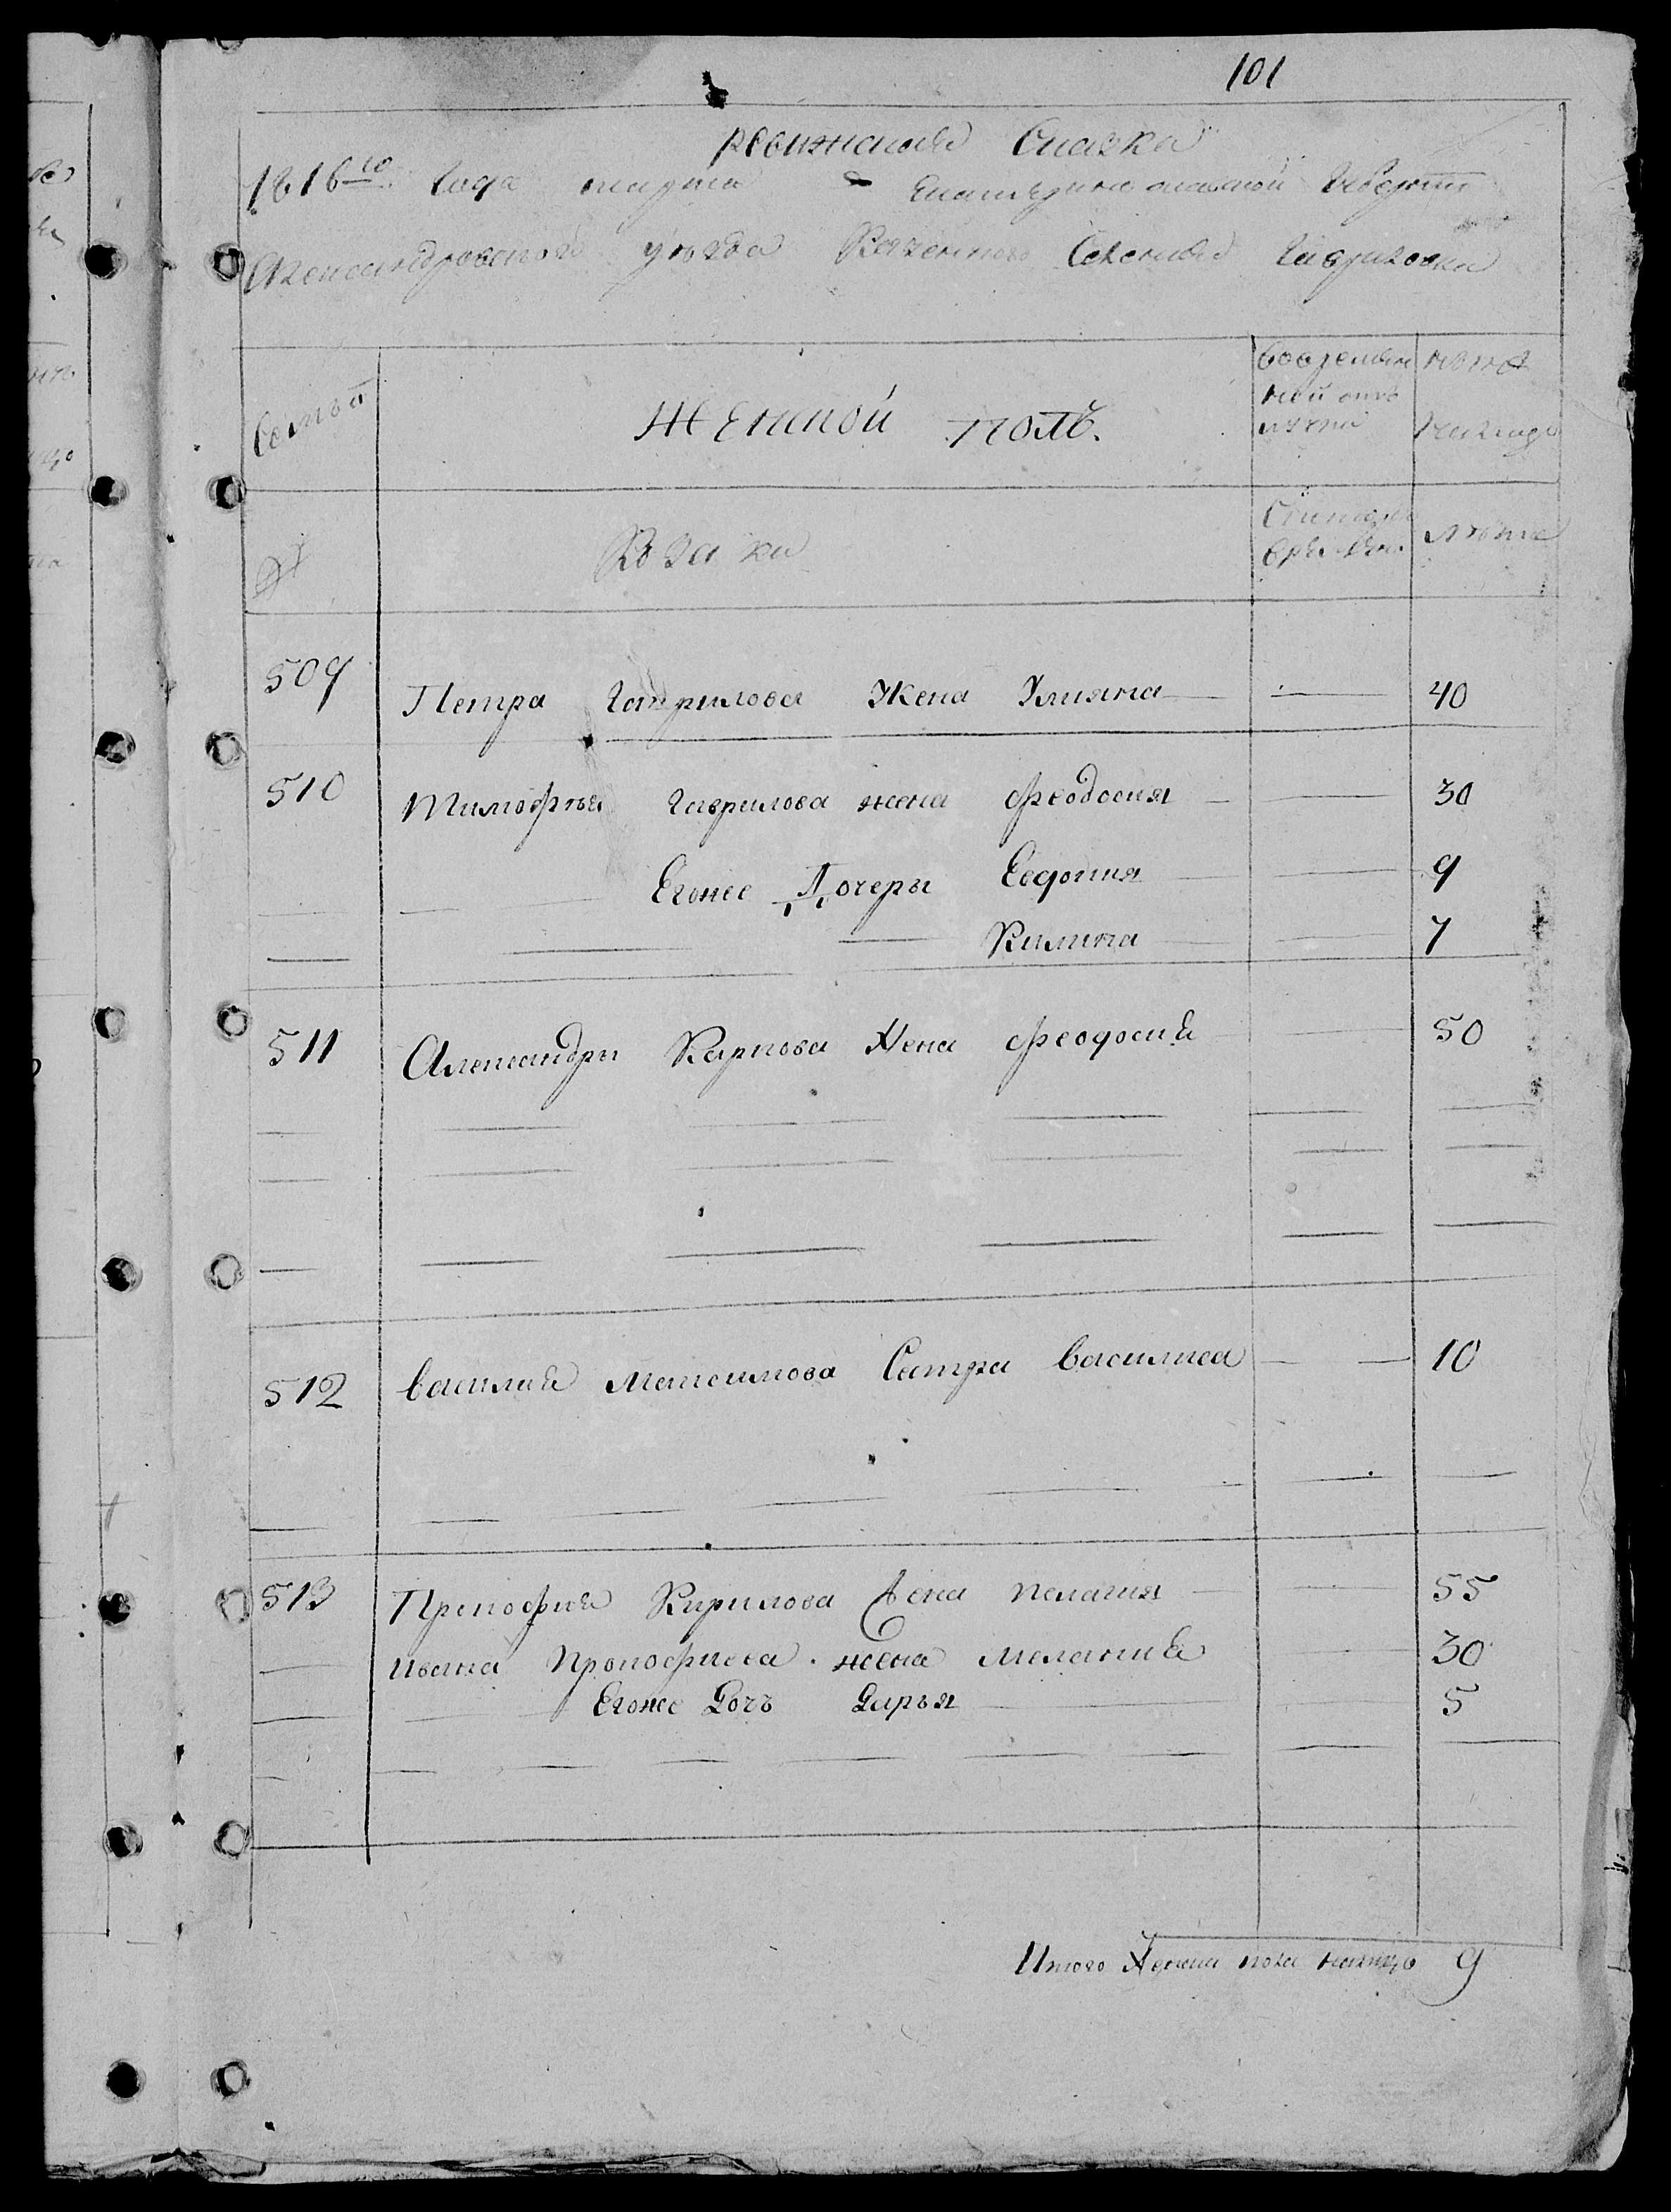 101
ревижская Сказка
1816го Года марта Екатеринославской Губерніи
Александровской уѣзда Казенного Селения Гавриловки
Семьи
Женской полъ.
Вовременной отлучки
Нынѣ на лицо
№
Козаки
Съ которого времени
лѣта
509 Петра Гаврилова Жена Улияна 40
510 Тимофѣя Гаврилова жена феодосия 30
Егоже Дочеры Евдокия 9
Килина 7
511 Александры Карпова Жена феодосия 50
512 Василия Максимова Сестра Василиса 10
513 Прокофия Кирилова Жена пелагия 55
ивана прокофиева жена мелания 30
Егоже Дочь Дарья 5
Итого Женска пола налицо 9